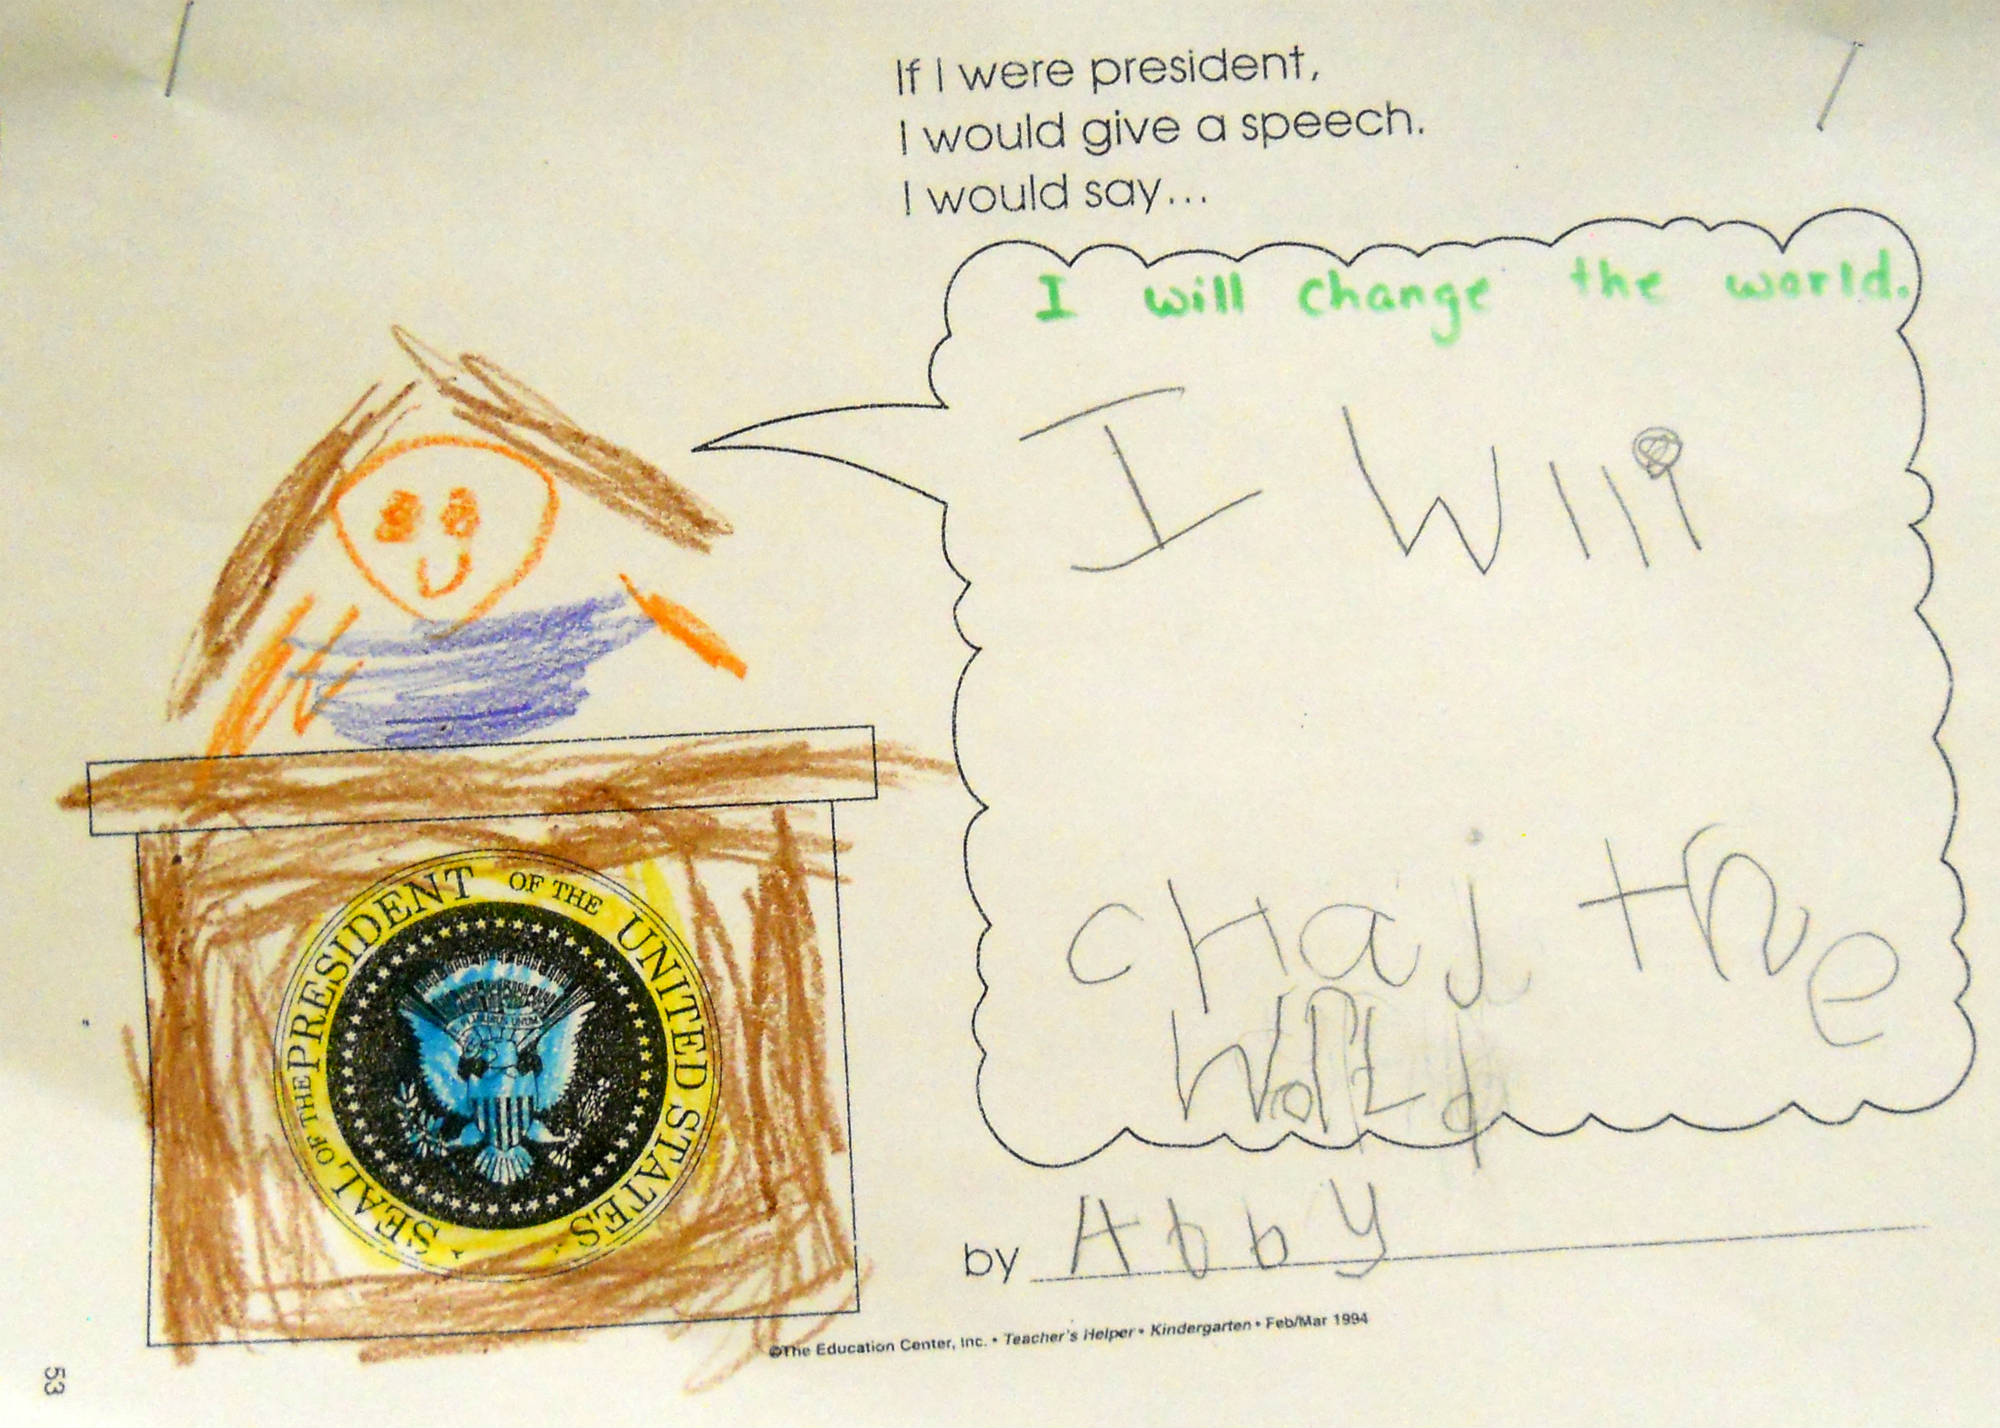 If I were president,
I would give a speech.
I would say...
I will change the world.
I Will
cHaj the
WorLd
by Abby
SEAL OF THE PRESIDENT OF THE UNITED STATES
E PLURIBUS UNUM
©The Education Center, Inc. • Teacher's Helper • Kindergarten • Feb/Mar 1994
53